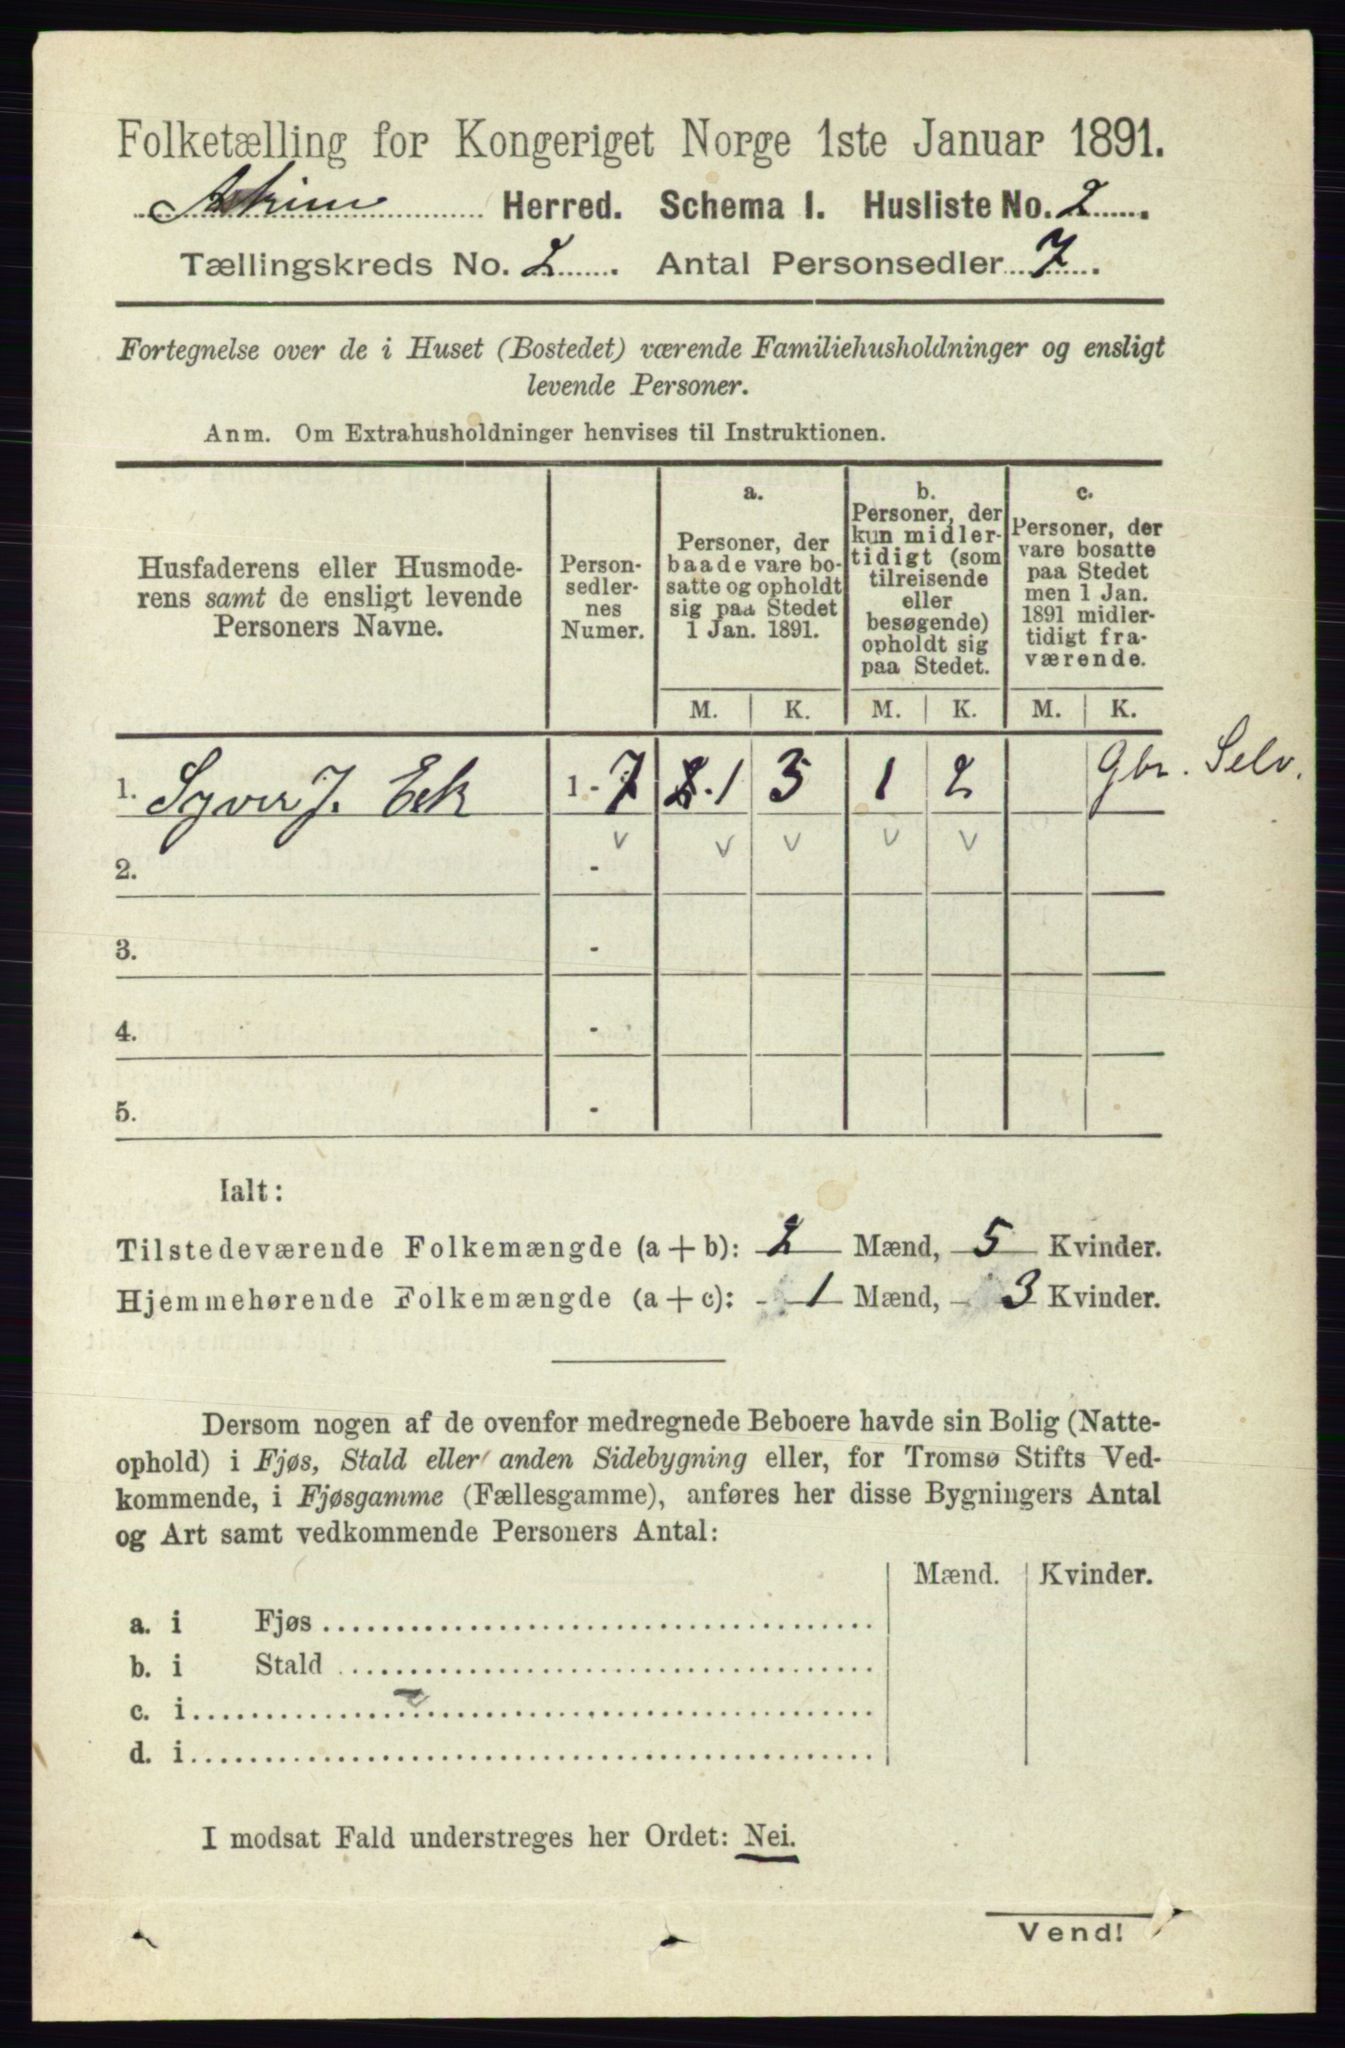 Folketælling for Kongeriget Norge 1ste Januar 1891.
Askim Herred. Schema I. Husliste No. 2
Tællingskreds No. 2. Antal Personsedler 7.
Fortegnelse over de i Huset (Bostedet) værende Familiehusholdninger og ensligt
levende Personer.
Anm. Om Extrahusholdninger henvises til Instruktionen.
Husfaderens eller Husmode-
rens samt de ensligt levende
Personers Navne.
Person-
sedler-
nes
Numer.
a.
Personer, der
baade vare bo-
satte og opholdt
sig paa Stedet
1 Jan. 1891.
b.
Personer, der
kun midler-
tidigt (som
tilreisende
eller
besøgende)
opholdt sig
paa Stedet.
c.
Personer, der
vare bosatte
paa Stedet
men 1 Jan.
1891 midler-
tidigt fra-
værende.
M. K. M. K. M. K.
1. Syver J. Eek 1 - 7 2. 1 3 1 2 Gbr. Selv.
v v v v v
2. -
3. -
4. -
5. -
Ialt:
Tilstedeværende Folkemængde (a + b): 2 Mænd, 5 Kvinder.
Hjemmehørende Folkemængde (a + c): 1 Mænd, 3 Kvinder.
Dersom nogen af de ovenfor medregnede Beboere havde sin Bolig (Natte-
ophold) i Fjøs, Stald eller anden Sidebygning eller, for Tromsø Stifts Ved-
kommende, i Fjøsgamme (Fællesgamme), anføres her disse Bygningers Antal
og Art samt vedkommende Personers Antal:
Mænd. Kvinder.
a. i Fjøs
b. i Stald
c. i
d. i
I modsat Fald understreges her Ordet: Nei.
Vend!